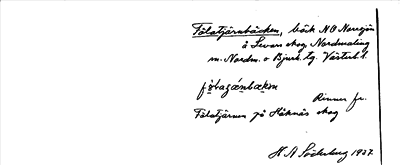 Fölatjärnbäcken, bäck NO Norrsjön
å Levars skog, Nordmaling
m. Nordm. o Bjurh. tg. Västerb. l.
Rinner fr.
Fölatjärnen på Häknäs skog
H A Söderberg 1937.